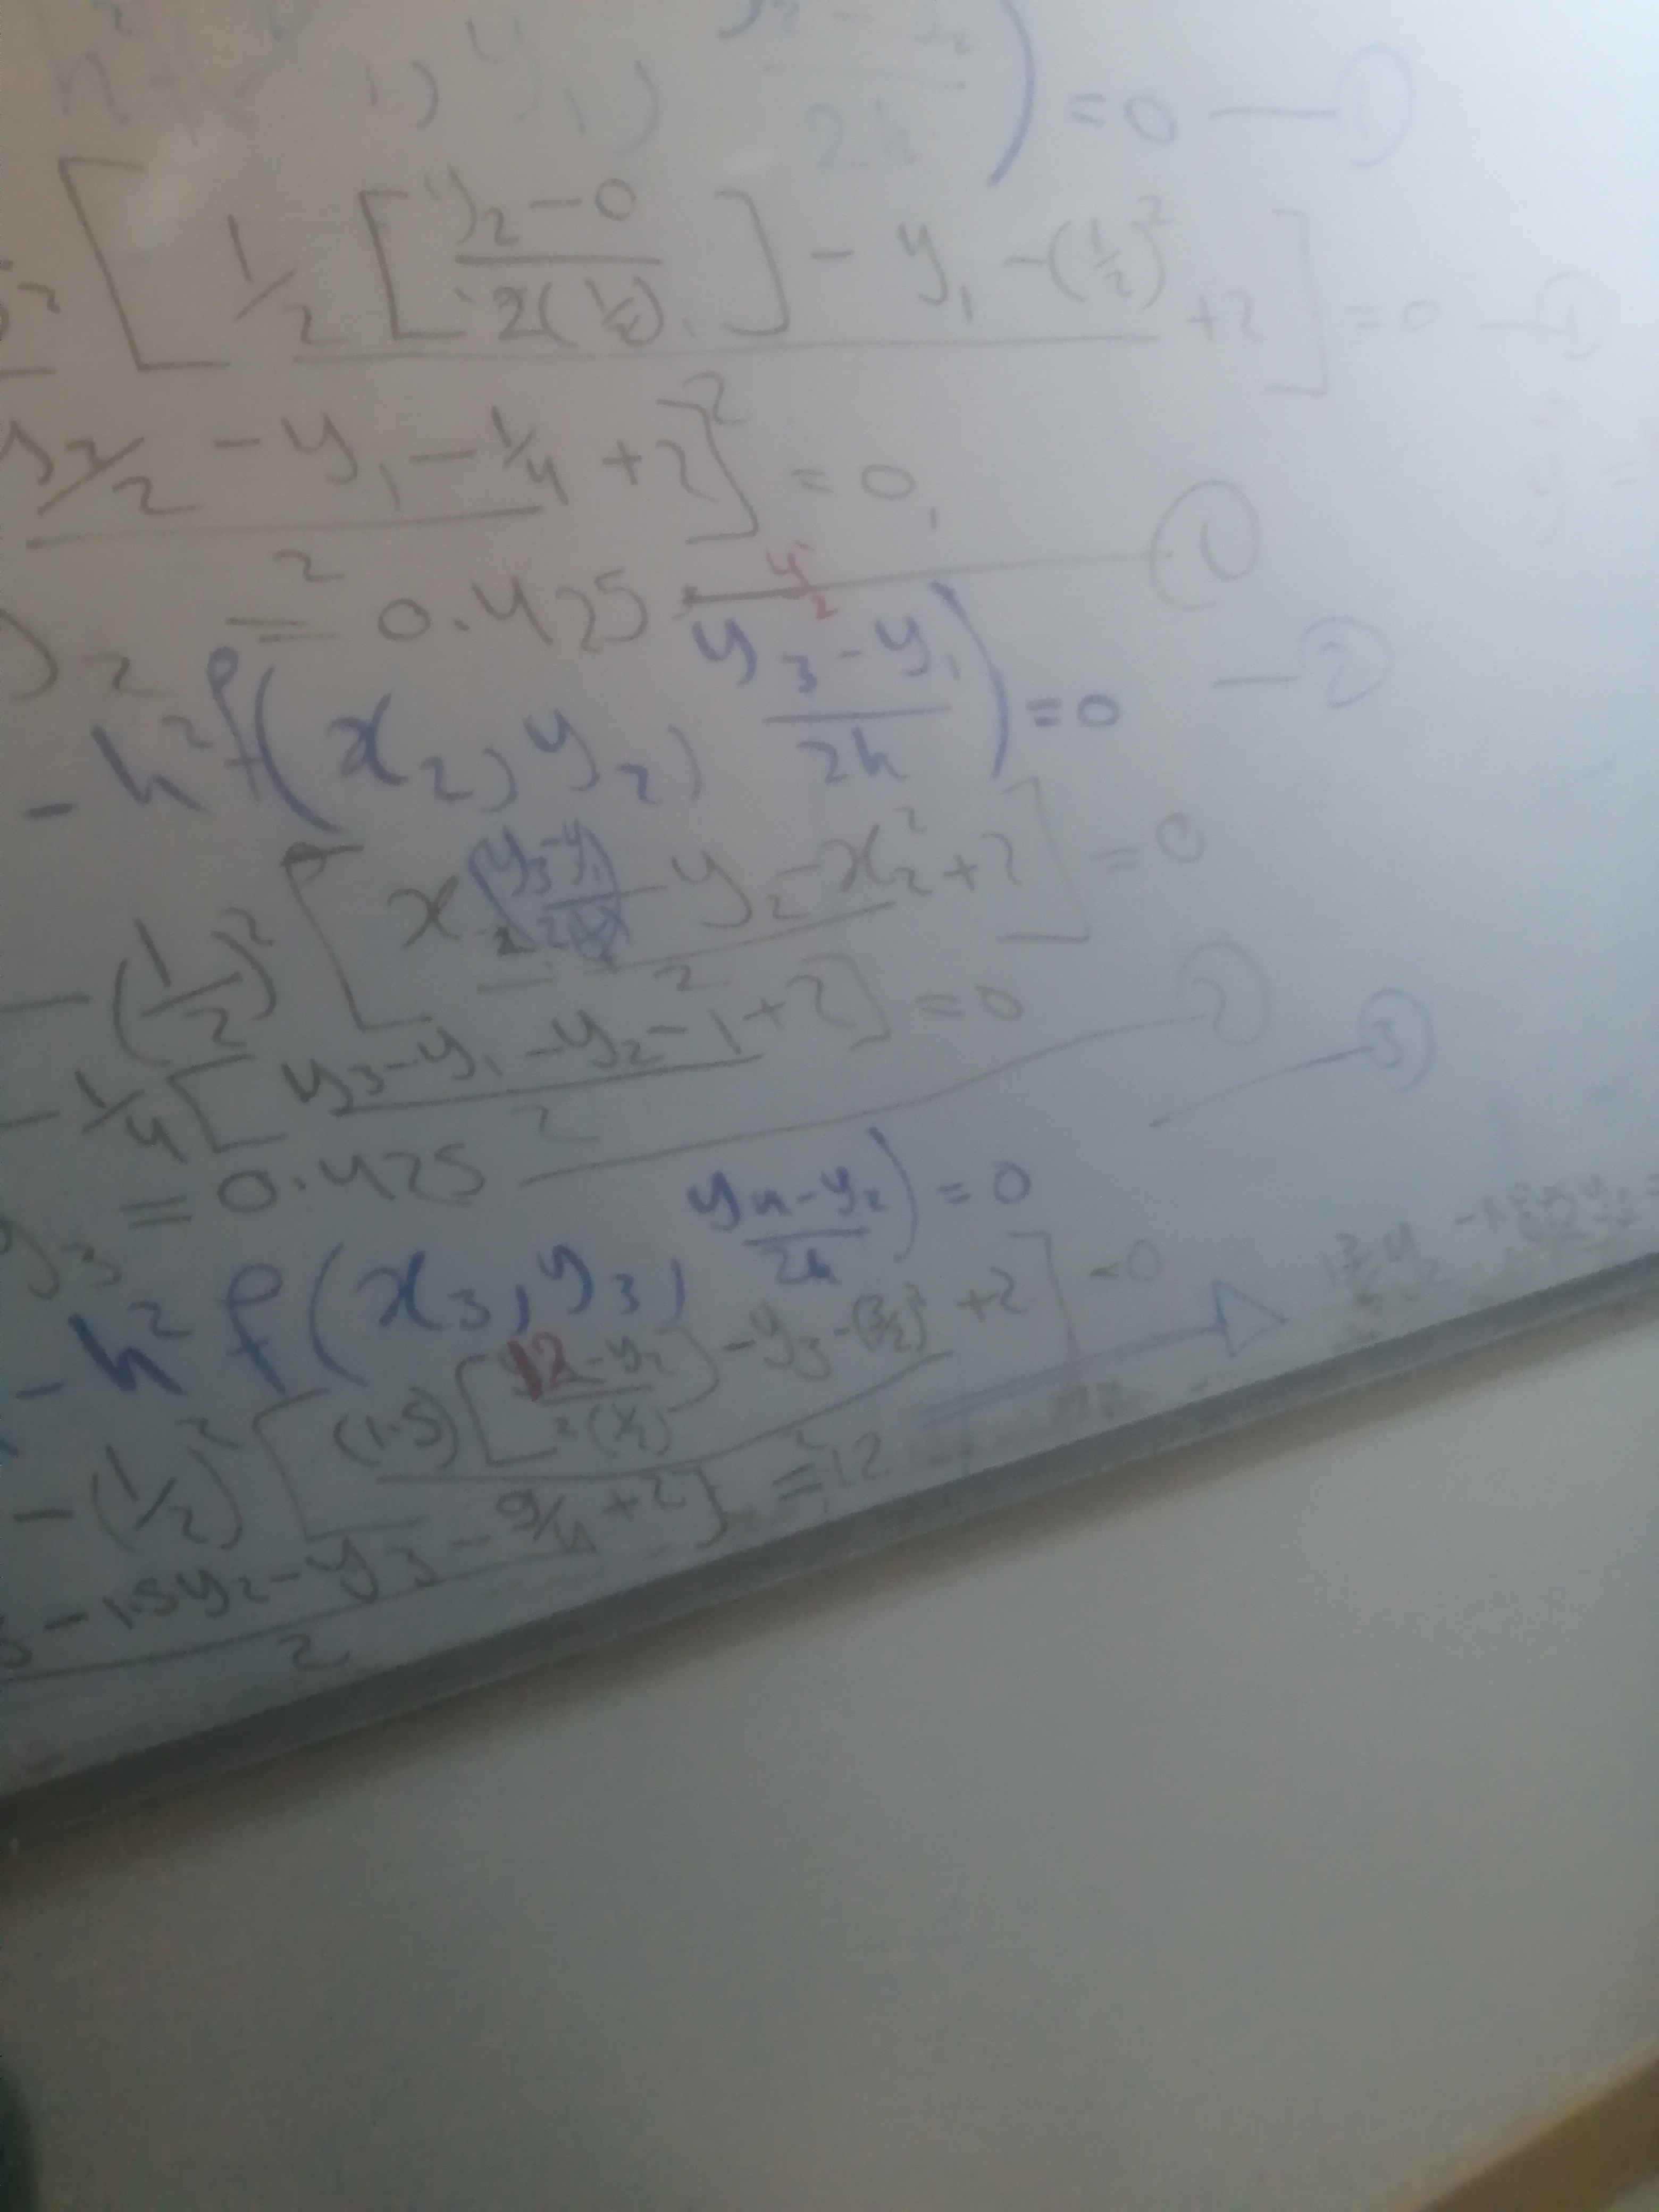 h² y₁, 2h ) = 0 — ①
[ 1/2 [ y₂ - 0 / 2(1/2) ] - y₁ - (1/2)² / 2 + 2 ] = 0 — ①
- y₁ - 1/4 / 2 + 2 ] = 0
y₂ = 0.425 — ①
- h² f( x₂, y₂, y₃ - y₁ / 2h ) = 0 — ②
- (1/2)² [ x₂ ( y₃ - y₁ / 2(1/2) ) - y₂ - x₂² / 2 + 2 ] = 0
- 1/4 [ y₃ - y₁ - y₂ - 1 / 2 + 2 ] = 0
y₃ = 0.425 — ②
— ③
- h² f( x₃, y₃, y₄ - y₂ / 2h ) = 0
- (1/2)² [ (1.5) [ 12 - y₂ / 2(1/2) ] - y₃ - (3/2)² / 2 + 2 ] = 0
- 1.5y₂ - y₃ - 9/4 / 2 + 2 ] = 12